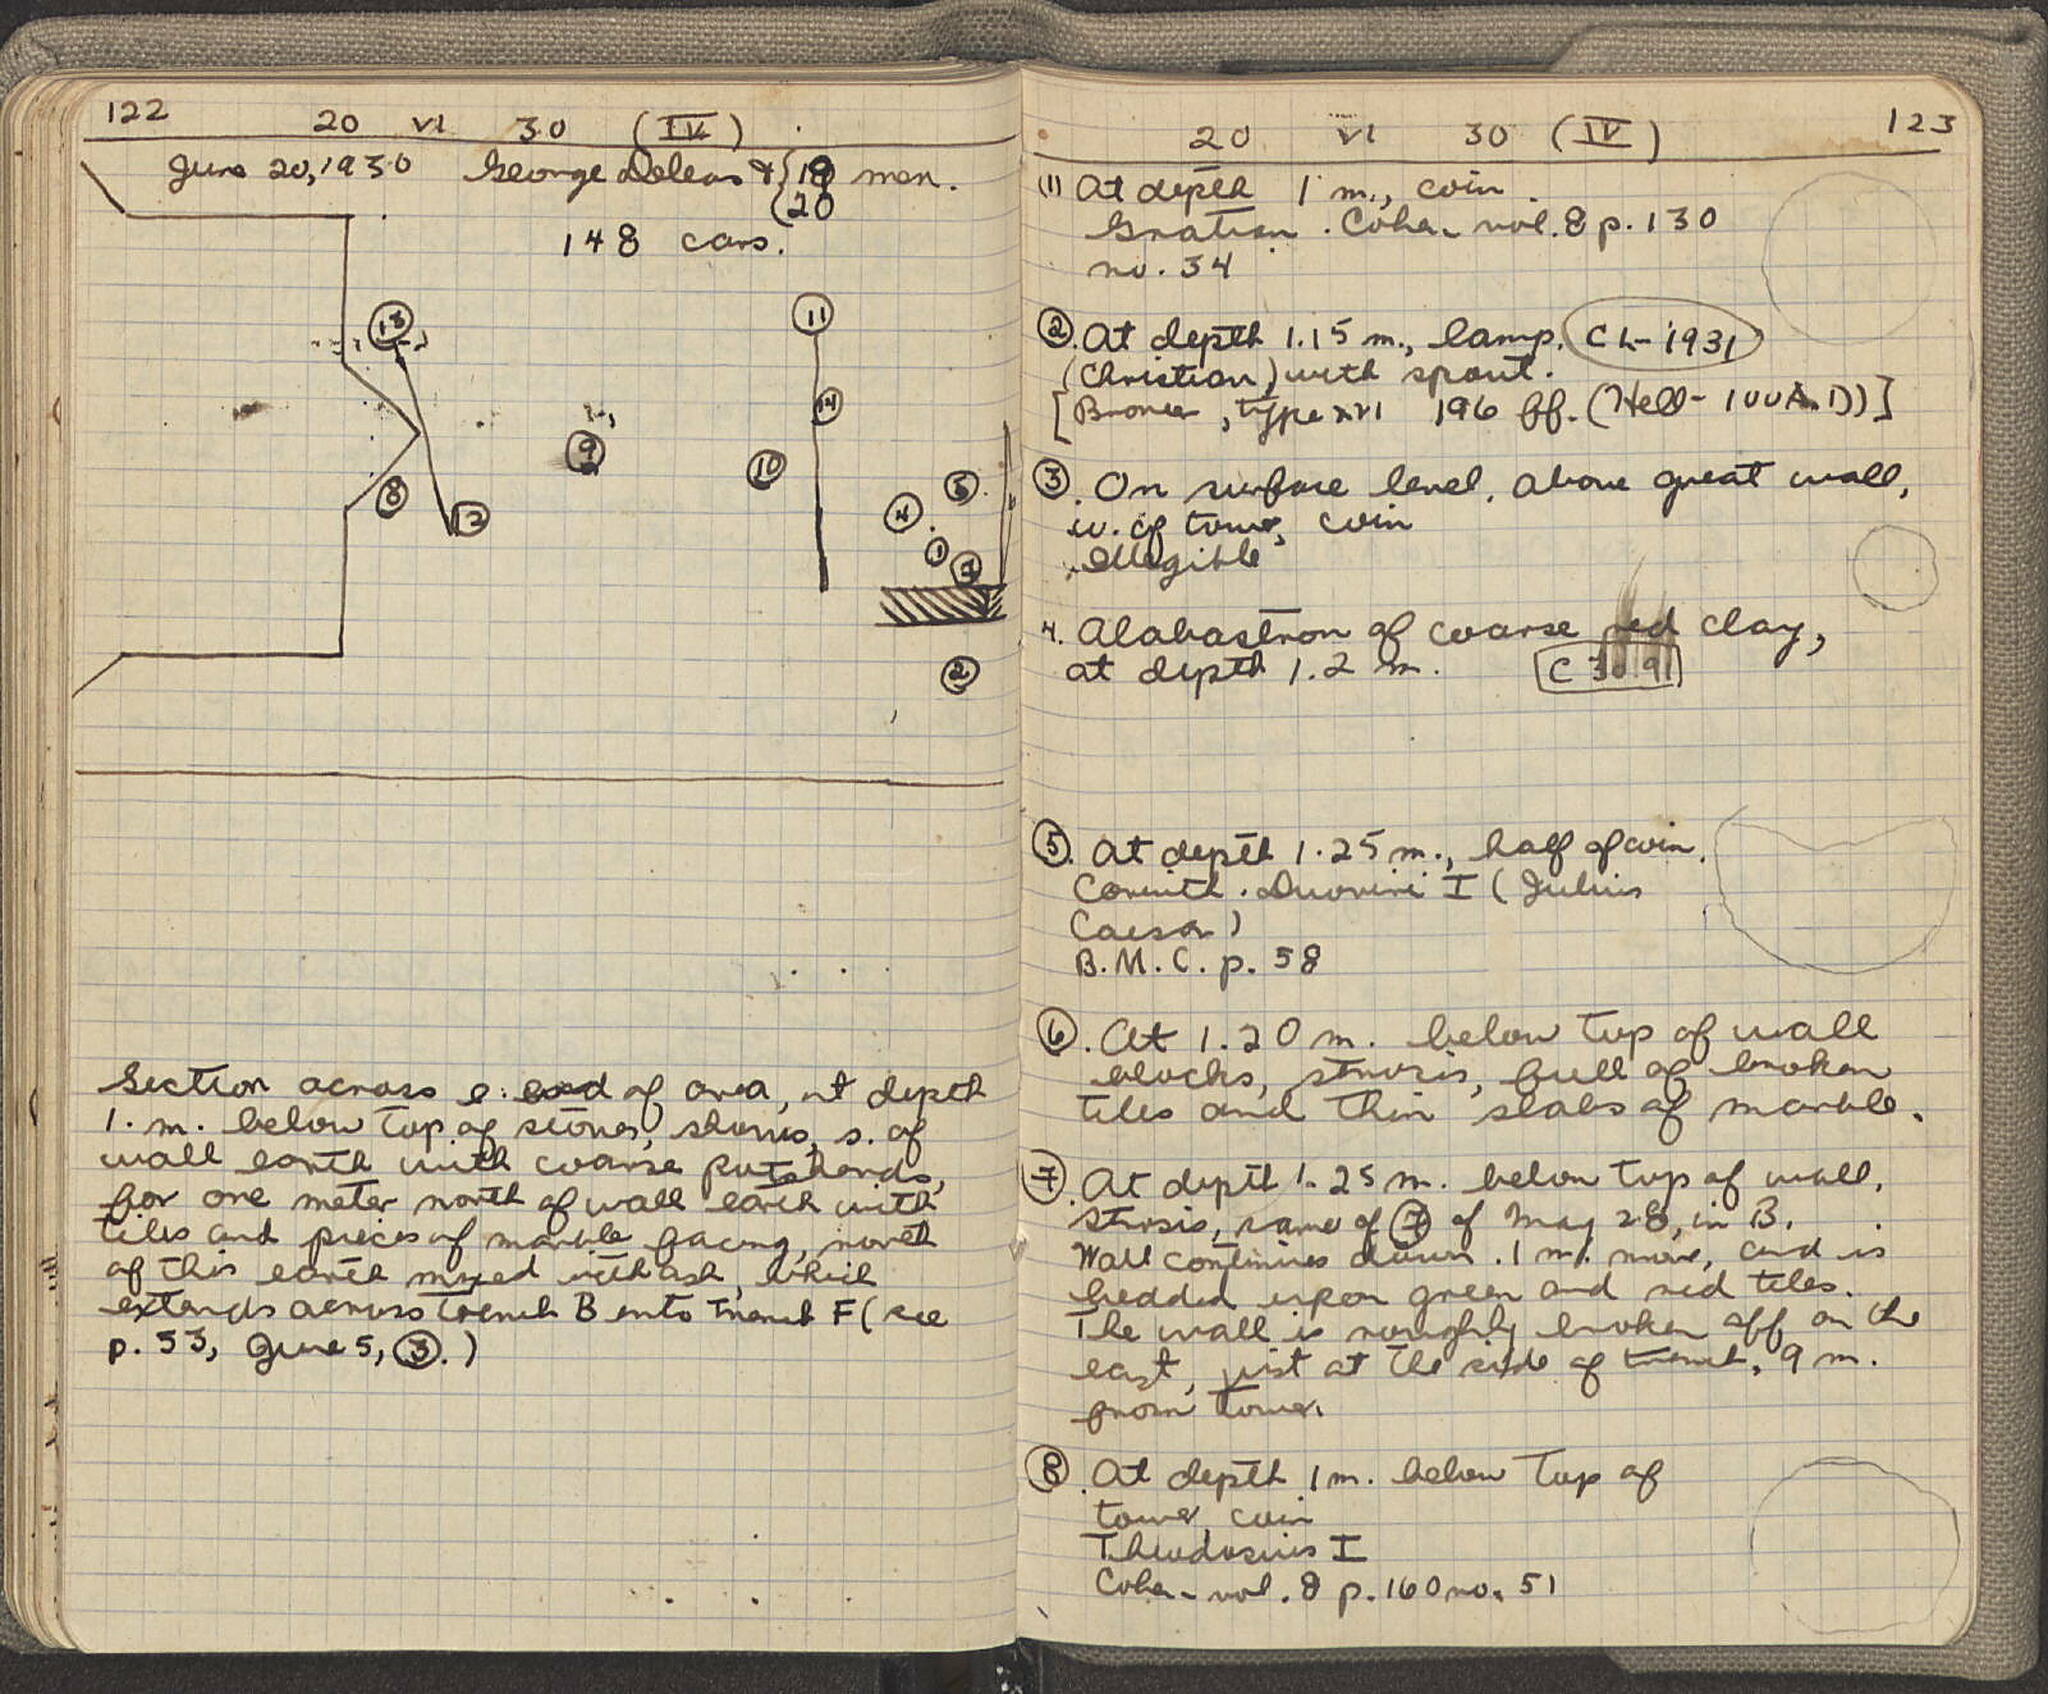 122
20 VI 30 (IV)
June 20, 1930 George Deleas & { 19 men.
{ 20
148 cars.
13
11
14
9
10
8
12
5
4
1
7
2
Section across e. end of area, at depth
1. m. below top of stones, shows, s. of
wall earth with coarse potsherds,
for one meter north of wall earth with
tiles and pieces of marble facing, north
of this earth mixed with ash, which
extends across Trench B into Trench F (see
p. 53, June 5, (3).)
123
20 VI 30 (IV)
(1) At depth 1 m., coin
Gratian. Cohen vol. 8 p. 130
no. 34
(2). At depth 1.15 m., lamp. CL-1931
(Christian) with spout.
[Broneer, type XVI 196 ff. (Hell-100 A.D)]
(3). On surface level, above great wall,
w. of tower, coin
illegible
4. Alabastron of coarse red clay,
at depth 1.2 m. C 30 91
(5). At depth 1.25 m., half of coin.
Corinth. Duoviri I (Julius
Caesar)
B.M.C. p. 58
(6). At 1.20 m. below top of wall
blocks, strosis, full of broken
tiles and thin slabs of marble.
(7). At depth 1.25 m. below top of wall,
strosis, same of (7) of May 28, in B.
Wall continues down .1 m. more, and is
bedded upon green and red tiles.
The wall is roughly broken off on the
east, just at the side of trench, 9 m.
from tower.
(8). At depth 1 m. below top of
tower, coin
Theodosius I
Cohen vol. 8 p. 160 no. 51